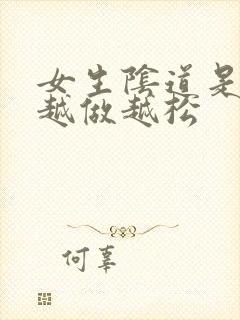 女生陰道是
越做越松
何辜